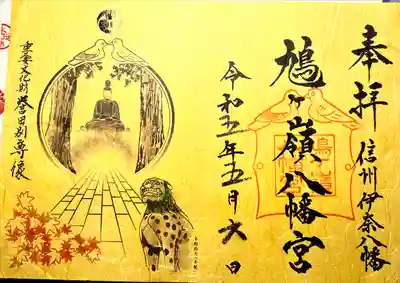 奉拝
信州伊奈八幡
鳩ヶ嶺八幡宮
令和五年五月六日
重要文化財誉田別尊像